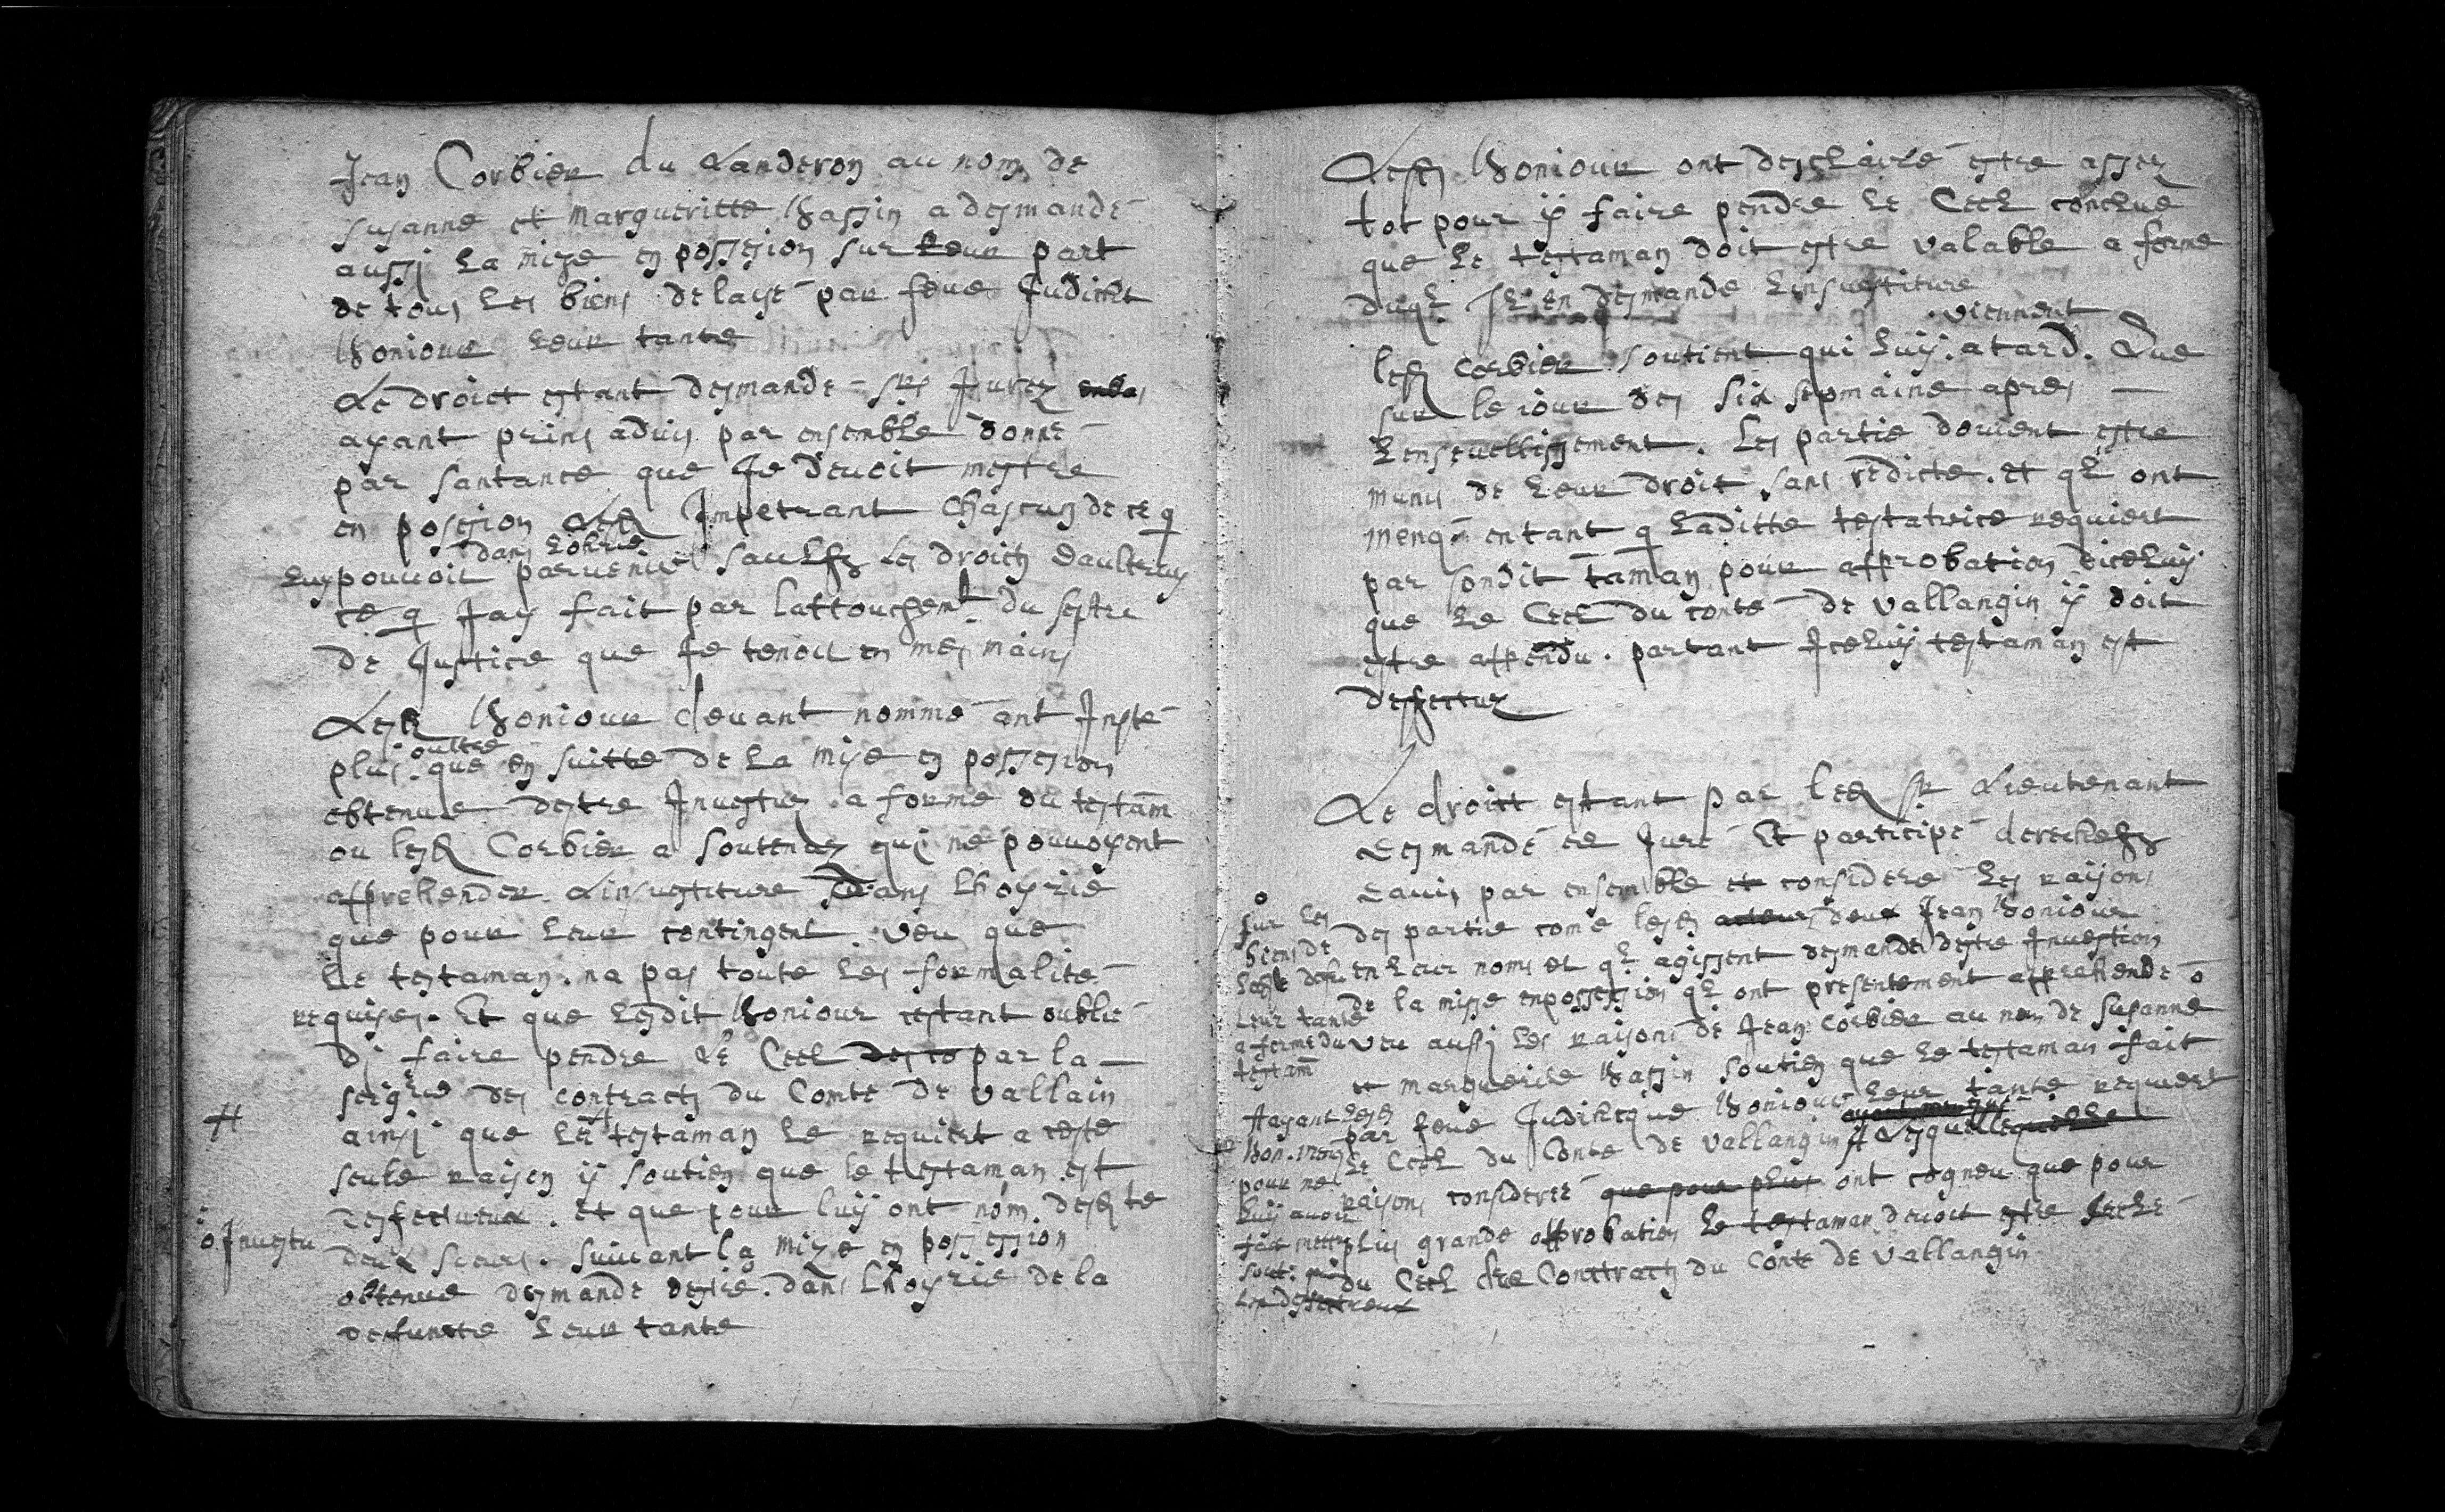 Jean Corbier du Landeron au nom de
susanne et margueritte Bassin a desmandé
aussj La mize en possesion sur Leur part
de tous Les biens delaisé par feue Judicht
Boniour Leur tante
Le droict estant desmande srs Jurez
ayant prins aduis par ensemble donné
par santance que Je deuoit mestre
en posesion Lesd Impetrant Chascung de ce q
dans Lohrie
Luy pouuoit paruenir saulfz Les droictz daultruy
ce q Jay fait par lattouchemt du septre
de Justice que Je tenoit en mes mains
Lesd Boniour deuant nommé ont Insté
oultre
plus que en suitte de La mise en possesion
obtenue destre Inuestuz a forme du testam
ou lesd Corbier a soutenuz quj ne pouuoyent
apprehender Linsuestiture dans Lhoyrie
que pour Leur contingent veu que
Le testaman na pas toute Les formalité
requises. Et que Lesdit Boniour estant oublié
dj faire pendre Le Ceel des co par la
seigrie des contractz du Comte de vallain
#
ainsj que Le # testaman Le requiert a ceste
seule raison ÿ soutien que le testaman est
desfectueux. et que pour luÿ ont nom desd te
o Inuestu
deux seurs. suiuant la mize en possession
obtenue desmande destre. dans Lhoyrie de la
defuncte Leur tante
Lesd Boniour ont desclairé estre assez
tot pour ÿ faire pendre Le Ceel conclue
que Le testaman doit estre valable a forme
duql Jl en desmande Linsuestiture
viennent
lesd Corbier soutient qui Luÿ a tard. Que
sur le iour des six sepmaine apres
Lenseuellissement. Les partie doiuent estre
munis de Leur droit sans redicte. et ql ont
menqé entant q Laditte testatrice requiert
par sondit taman pour approbation diceluÿ
que Le Ceel du conté de vallangin ÿ doit
estre appendu. partant Jceluÿ testaman est
desfectuz
Le droitt estant par led sr Lieutenant
desmandé ce Juré Et participé derechefz
Lauis par ensemble et consideré Les raisons
des partie come lesd acteurs deux Jean Boniour
en Leur noms et ql agissent desmande destre Inuestion
de la mise enpossession ql ont presentement apprehendé o
veu aussj Les raisons de Jean Corbier au nom de susanne
et marguerite Bassin soutien que Le testaman fait
par feue Judihtque Boniour Leur tante requiert
Le Ceel du Conte de vallangin # Lesquelle
raisons considereé que pour plus ont cogneu que pour
plus grande approbation Le testaman deuoit estre seelé
du Ceel des Conttractz du Conte de Vallangin
o
sur Les
biens de
Leur tante
a forme du
testam
#ayant Lesd
Bon. menq
pour ne
Luÿ auoir
fait mettre